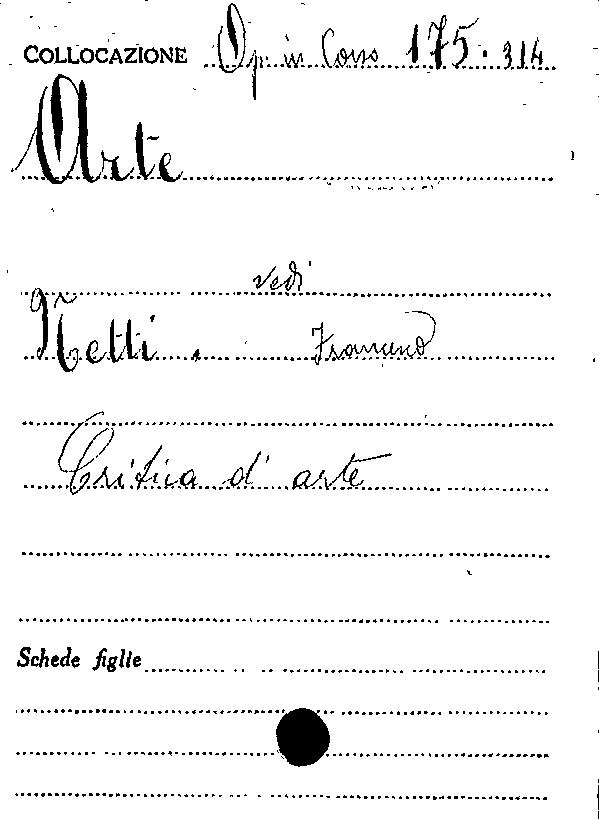 COLLOCAZIONE Op. in Corso 175.314
Arte
vedi
Netti. Francesco
Critica d'arte
Schede figlie